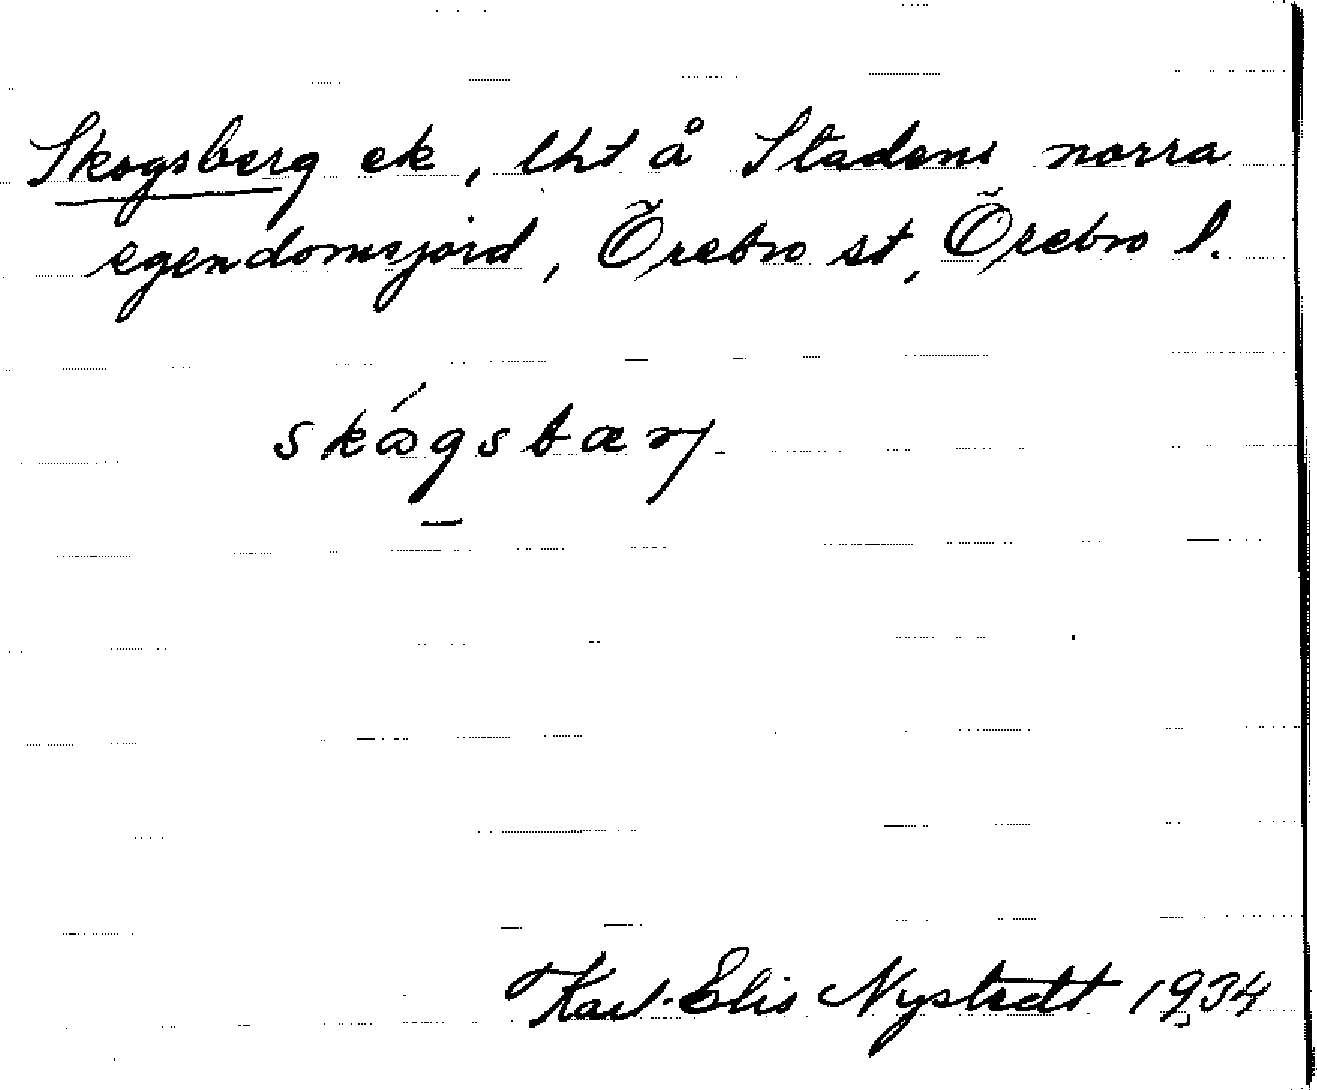 Skogsberg ek, lht å Stadens norra
egendomsjord, Örebro st, Örebro l.
skógsbærj
Karl-Elis Nystedt 1934